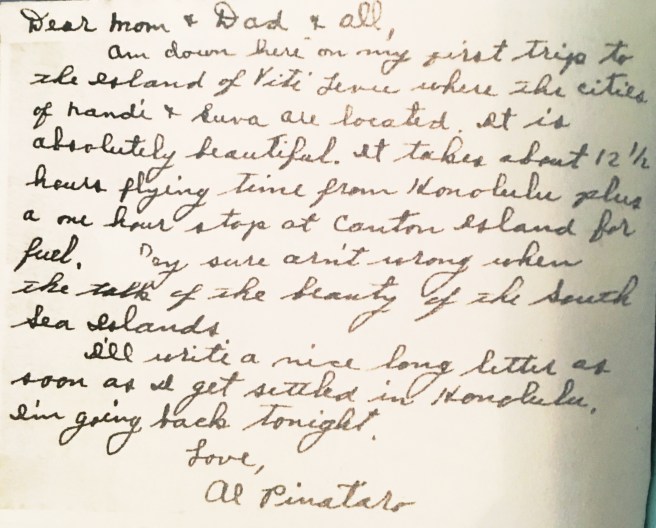 Dear Mom & Dad & all,
Am down here on my first trip to
the Island of Viti Levu where the cities
of Nandi & Suva are located. It is
absolutely beautiful. It takes about 12 1/2
hours flying time from Honolulu plus
a one hour stop at Canton Island for
fuel. They sure arn't wrong when
the talk of the beauty of the South
Sea Islands
I'll write a nice long letter as
soon as I get settled in Honolulu.
I'm going back tonight.
Love,
Al Pinataro